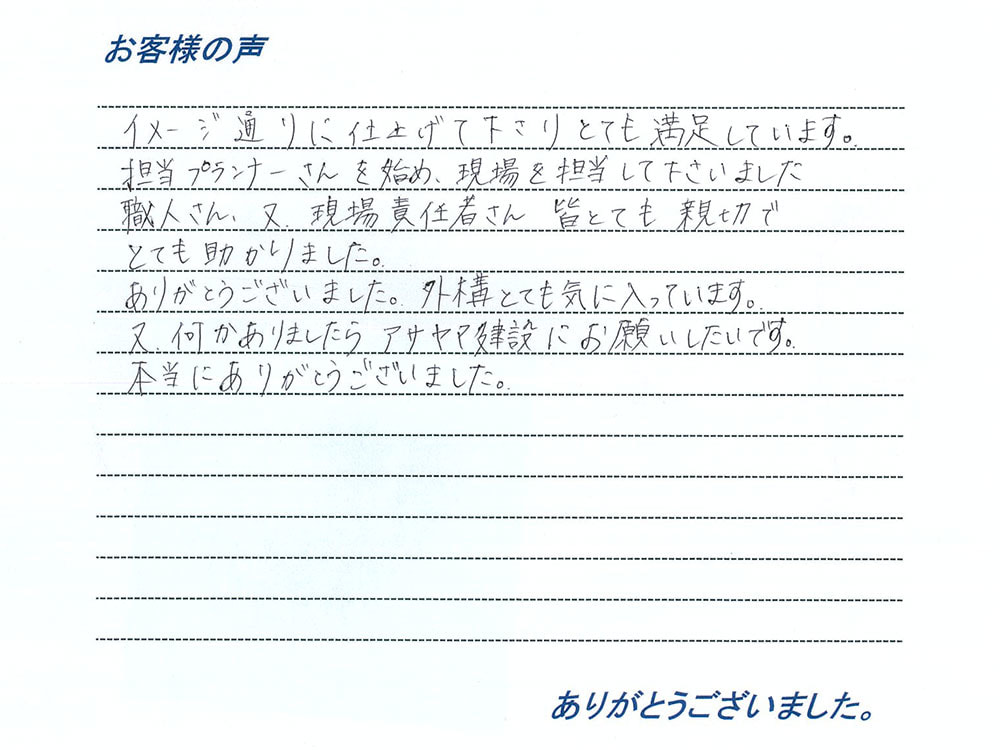 お客様の声
イメージ通りに仕上げて下さりとても満足しています。
担当プランナーさんを始め、現場を担当して下さいました
職人さん、又、現場責任者さん 皆とても親切で
とても助かりました。
ありがとうございました。外構とても気に入っています。
又、何かありましたらアサヤマ建設にお願いしたいです。
本当にありがとうございました。
ありがとうございました。